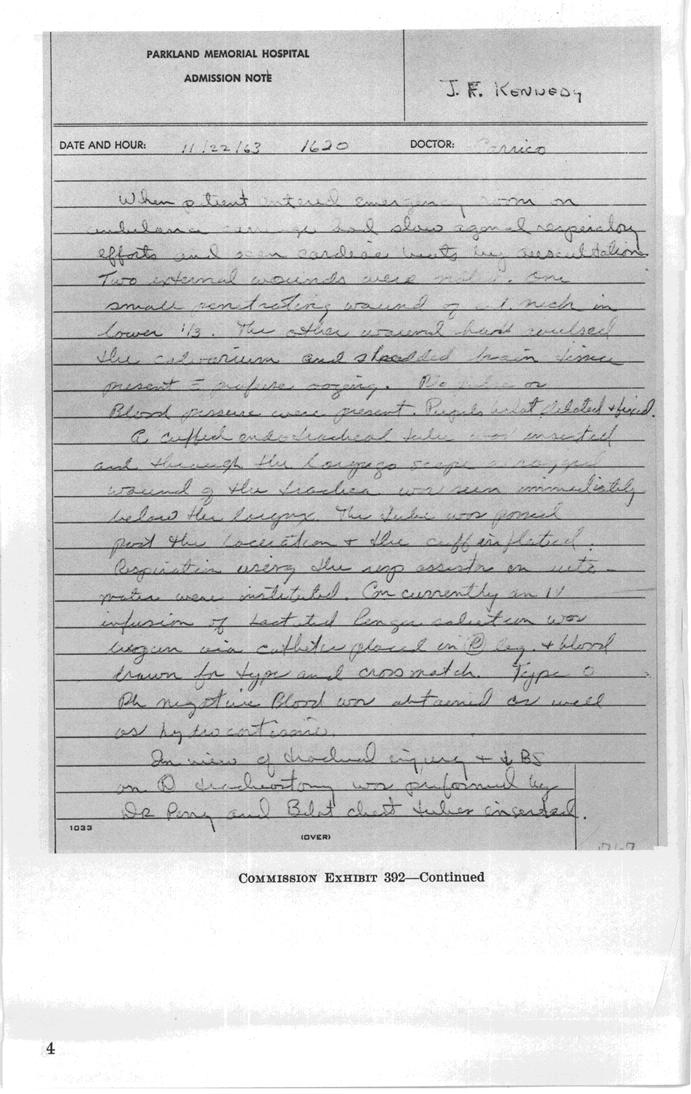 PARKLAND MEMORIAL HOSPITAL
ADMISSION NOTE
J. F. KENNEDY
DATE AND HOUR: 11/22/63 1620 DOCTOR: Carrico
When patient entered emergency room on
ambulance carriage had slow agonal respiratory
efforts and scan cardiac beats by auscultation.
Two external wounds were noted. One
small penetrating wound of ant. neck in
lower 1/3. The other wound had caused
the calvarium and shredded brain tissue
present c̄ profuse oozing. No pulse or
Blood pressure were present. Pupils bilat. dilated + fixed.
A cuffed endotracheal tube was inserted
and through the laryngoscope a ragged
wound of the trachea was seen immediately
below the larynx. The tube was passed
past the laceration + the cuff inflated.
Respiration using the resp assistor on auto-
matic were instituted. Concurrently an IV
infusion of Lactated Ringer solution was
begun via catheter placed in Ⓡ leg. + blood
drawn for type and crossmatch. Type O
Rh negative Blood was obtained as well
as hydrocortisone.
In view of tracheal injury + ↓ BS
on Ⓡ tracheostomy was performed by
Dr Perry and Bilat chest tubes inserted.
1033
(OVER)
COMMISSION EXHIBIT 392—Continued
4